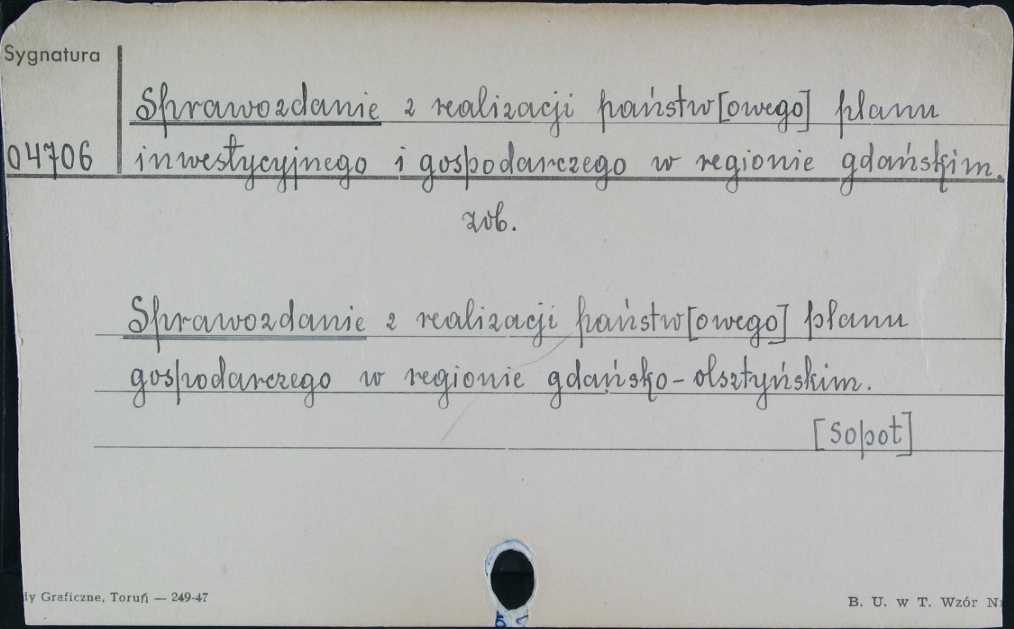 Sygnatura
Sprawozdanie z realizacji państw[owego] planu
04706 inwestycyjnego i gospodarczego w regionie gdańskim.
zob.
Sprawozdanie z realizacji państw[owego] planu
gospodarczego w regionie gdańsko-olsztyńskim.
[Sopot]
dy Graficzne, Toruń — 249-47
B. U. w T. Wzór N